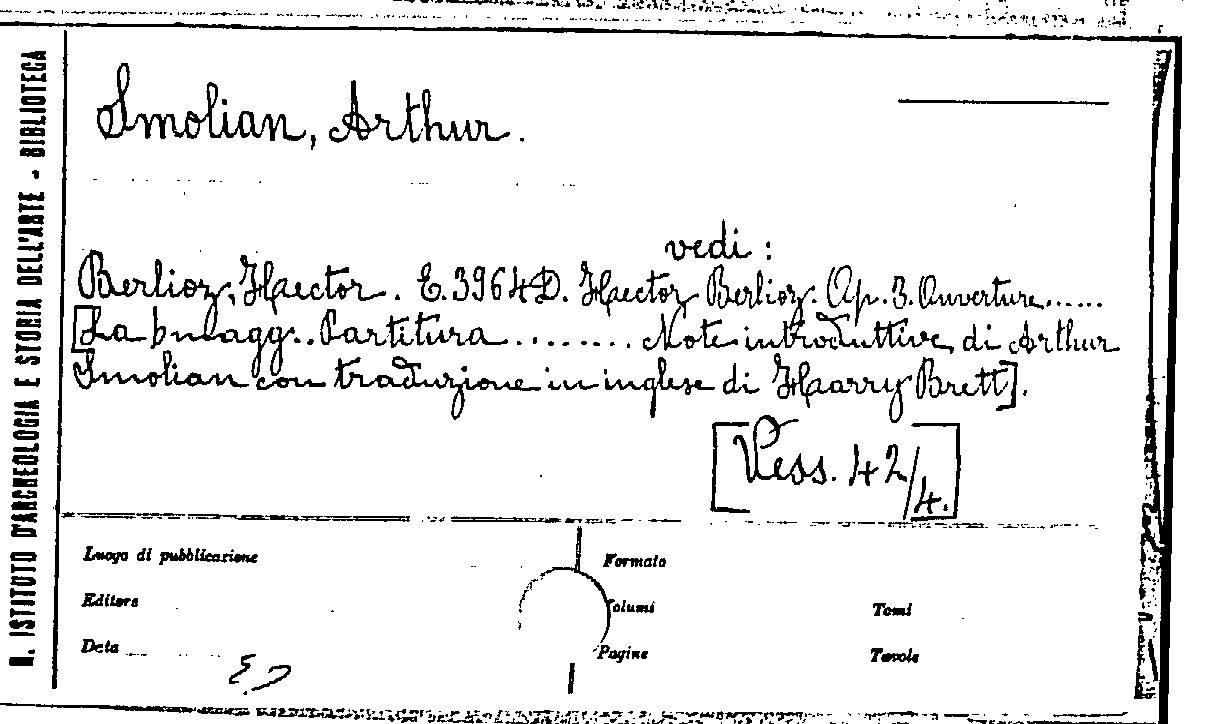 R. ISTITUTO D'ARCHEOLOGIA E STORIA DELL'ARTE - BIBLIOTECA
Smolian, Arthur.
vedi :
Berlioz, Haector. E. 3964D. Haector Berlioz. Op. 3. Ouverture......
[La bulagg.. Partitura ........ Note introduttive, di Arthur
Smolian con traduzione in inglese di Haarry Brett].
[Vess. 42/4.]
Luogo di pubblicazione
Formato
Editore
Volumi
Tomi
Data
Pagine
Tavole